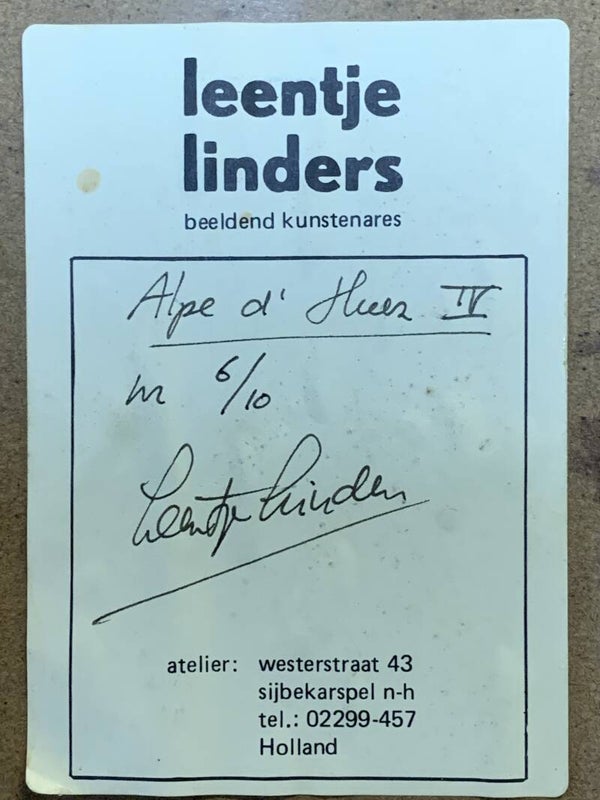 leentje
linders
beeldend kunstenares
Alpe d' Huez IV
nr 6/10
Leentje Linders
atelier: westerstraat 43
sijbekarspel n-h
tel.: 02299-457
Holland